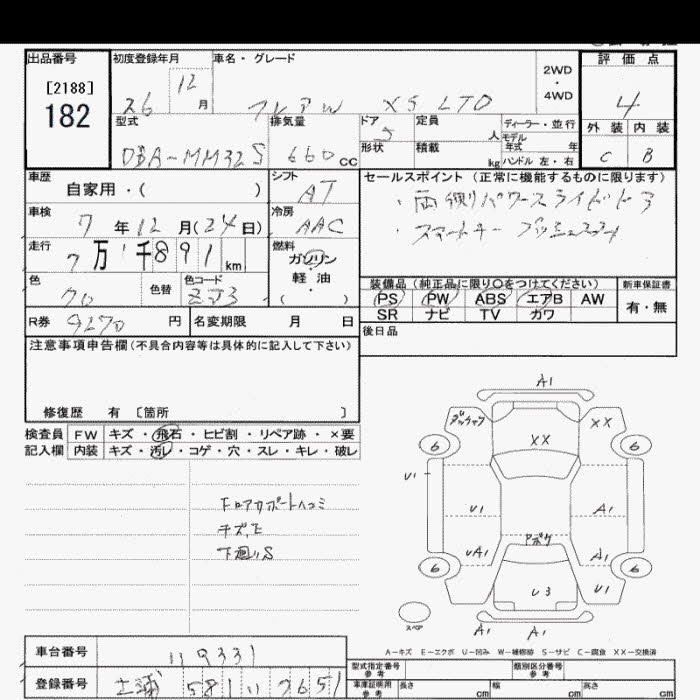 出品番号
[2188]
182
初度登録年月
26 12月
車名・グレード
フレアW XS LTD
2WD
・
4WD
評価点
4
外装 内装
C B
型式
DBA-MM32S
排気量
660 CC
ドア
5
定員
人
形状
積載
kg
ディーラー・並行
モデル
年式 年
ハンドル 左・右
車歴
自家用・( )
シフト
AT
車検
7年12月(24日)
冷房
AAC
走行
7万 千891km
燃料
ガソリン
・
軽油
・
( )
色
クロ
色替
色コード
ZJ3
R券
9270円
名変期限 月 日
セールスポイント (正常に機能するものに限ります)
・両側パワースライドドア
・スマートキー プッシュスタート
装備品(純正品に限り○をつけてください)
PS PW ABS エアB AW
SR ナビ TV カワ
新車保証書
有・無
後日品
注意事項申告欄(不具合内容等は具体的に記入して下さい)
修復歴 有 〔箇所 〕
検査員記入欄
FW キズ・飛石・ヒビ割・リペア跡・×要
内装 キズ・汚レ・コゲ・穴・スレ・キレ・破レ
ドロアカボートヘコミ
キズ,E
下廻リS
A1
XX
XX
6
6
U1
U1
A1
UA1
アボク
A1
6
6
U3
U1
スペア
A1
A1
A－キズ E－エクボ U－凹み W－補修跡 S－サビ C－腐食 XX－交換済
車台番号
119331
登録番号
土浦 581 い 7651
型式指定番号
参考
類別区分番号
参考
車庫証明用
参考
長さ cm
幅 cm
高さ cm